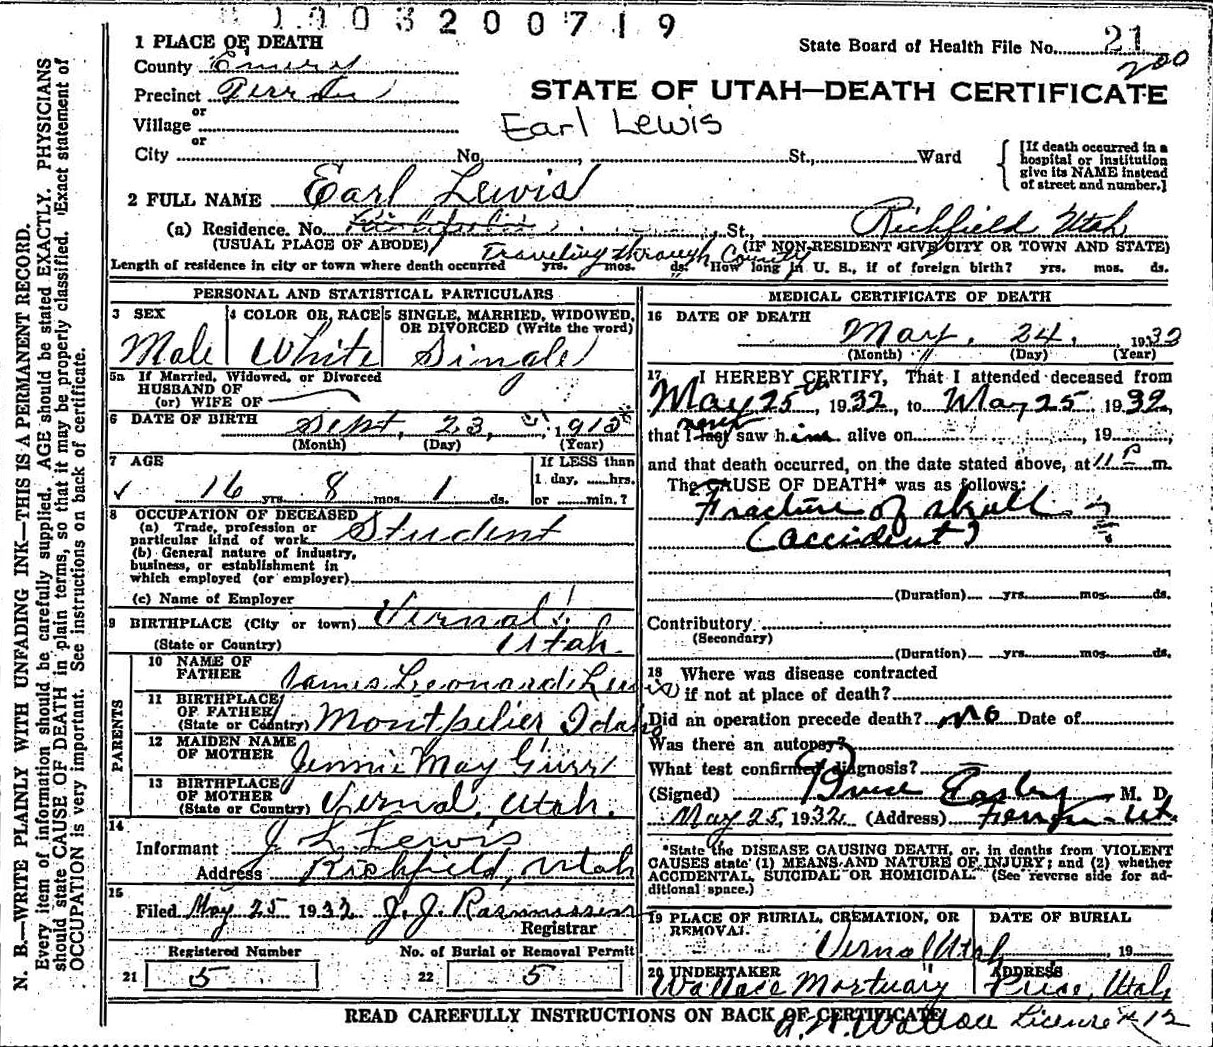 1003200719
1 PLACE OF DEATH
State Board of Health File No. 21
200
County Emery
Precinct Ferron
STATE OF UTAH—DEATH CERTIFICATE
or
Village
Earl Lewis
or
City No. St., Ward
[If death occurred in a hospital or institution give its NAME instead of street and number.]
2 FULL NAME Earl Lewis
(a) Residence. No. St., Richfield Utah
(USUAL PLACE OF ABODE) (IF NON-RESIDENT GIVE CITY OR TOWN AND STATE)
Traveling through County
Length of residence in city or town where death occurred yrs. mos. ds. How long in U. S., if of foreign birth? yrs. mos. ds.
PERSONAL AND STATISTICAL PARTICULARS
3 SEX 4 COLOR OR RACE 5 SINGLE, MARRIED, WIDOWED, OR DIVORCED (Write the word)
Male White Single
5a If Married, Widowed, or Divorced
HUSBAND OF
(or) WIFE OF
6 DATE OF BIRTH Sept. 23, 1915
(Month) (Day) (Year)
7 AGE
If LESS than
1 day, hrs.
16 yrs. 8 mos. 1 ds. or min.?
8 OCCUPATION OF DECEASED
(a) Trade, profession or
particular kind of work Student
(b) General nature of industry,
business, or establishment in
which employed (or employer)
(c) Name of Employer
9 BIRTHPLACE (City or town) Vernal
(State or Country) Utah
PARENTS
10 NAME OF FATHER James Leonard Lewis
11 BIRTHPLACE OF FATHER (State or Country) Montpelier Idaho
12 MAIDEN NAME OF MOTHER Jennie May Gurr
13 BIRTHPLACE OF MOTHER (State or Country) Vernal, Utah.
14
Informant J L Lewis
Address Richfield, Utah
15
Filed May 25 1932 J. J. Rasmussen
Registrar
Registered Number No. of Burial or Removal Permit
21 5 22 5
MEDICAL CERTIFICATE OF DEATH
16 DATE OF DEATH
May. 24, 1932
(Month) (Day) (Year)
17 I HEREBY CERTIFY, That I attended deceased from
May 25th, 1932, to May 25 1932,
that I last never saw him alive on , 19 ,
and that death occurred, on the date stated above, at 11 P m.
The CAUSE OF DEATH* was as follows:
Fracture of skull
(accident)
(Duration) yrs. mos. ds.
Contributory
(Secondary)
(Duration) yrs. mos. ds.
18 Where was disease contracted
if not at place of death?
Did an operation precede death? no Date of
Was there an autopsy?
What test confirmed diagnosis?
(Signed) Bruce Easley M. D.
May 25, 1932 (Address) Ferron - Ut.
*State the DISEASE CAUSING DEATH, or, in deaths from VIOLENT
CAUSES state (1) MEANS AND NATURE OF INJURY; and (2) whether
ACCIDENTAL, SUICIDAL OR HOMICIDAL. (See reverse side for ad-
ditional space.)
19 PLACE OF BURIAL, CREMATION, OR REMOVAL DATE OF BURIAL
Vernal Utah , 19
20 UNDERTAKER ADDRESS
Wallace Mortuary Price, Utah
READ CAREFULLY INSTRUCTIONS ON BACK OF CERTIFICATE
A. W. Wallace License # 12
N. B.—WRITE PLAINLY WITH UNFADING INK—THIS IS A PERMANENT RECORD.
Every item of information should be carefully supplied. AGE should be stated EXACTLY. PHYSICIANS
should state CAUSE OF DEATH in plain terms, so that it may be properly classified. Exact statement of
OCCUPATION is very important. See instructions on back of certificate.